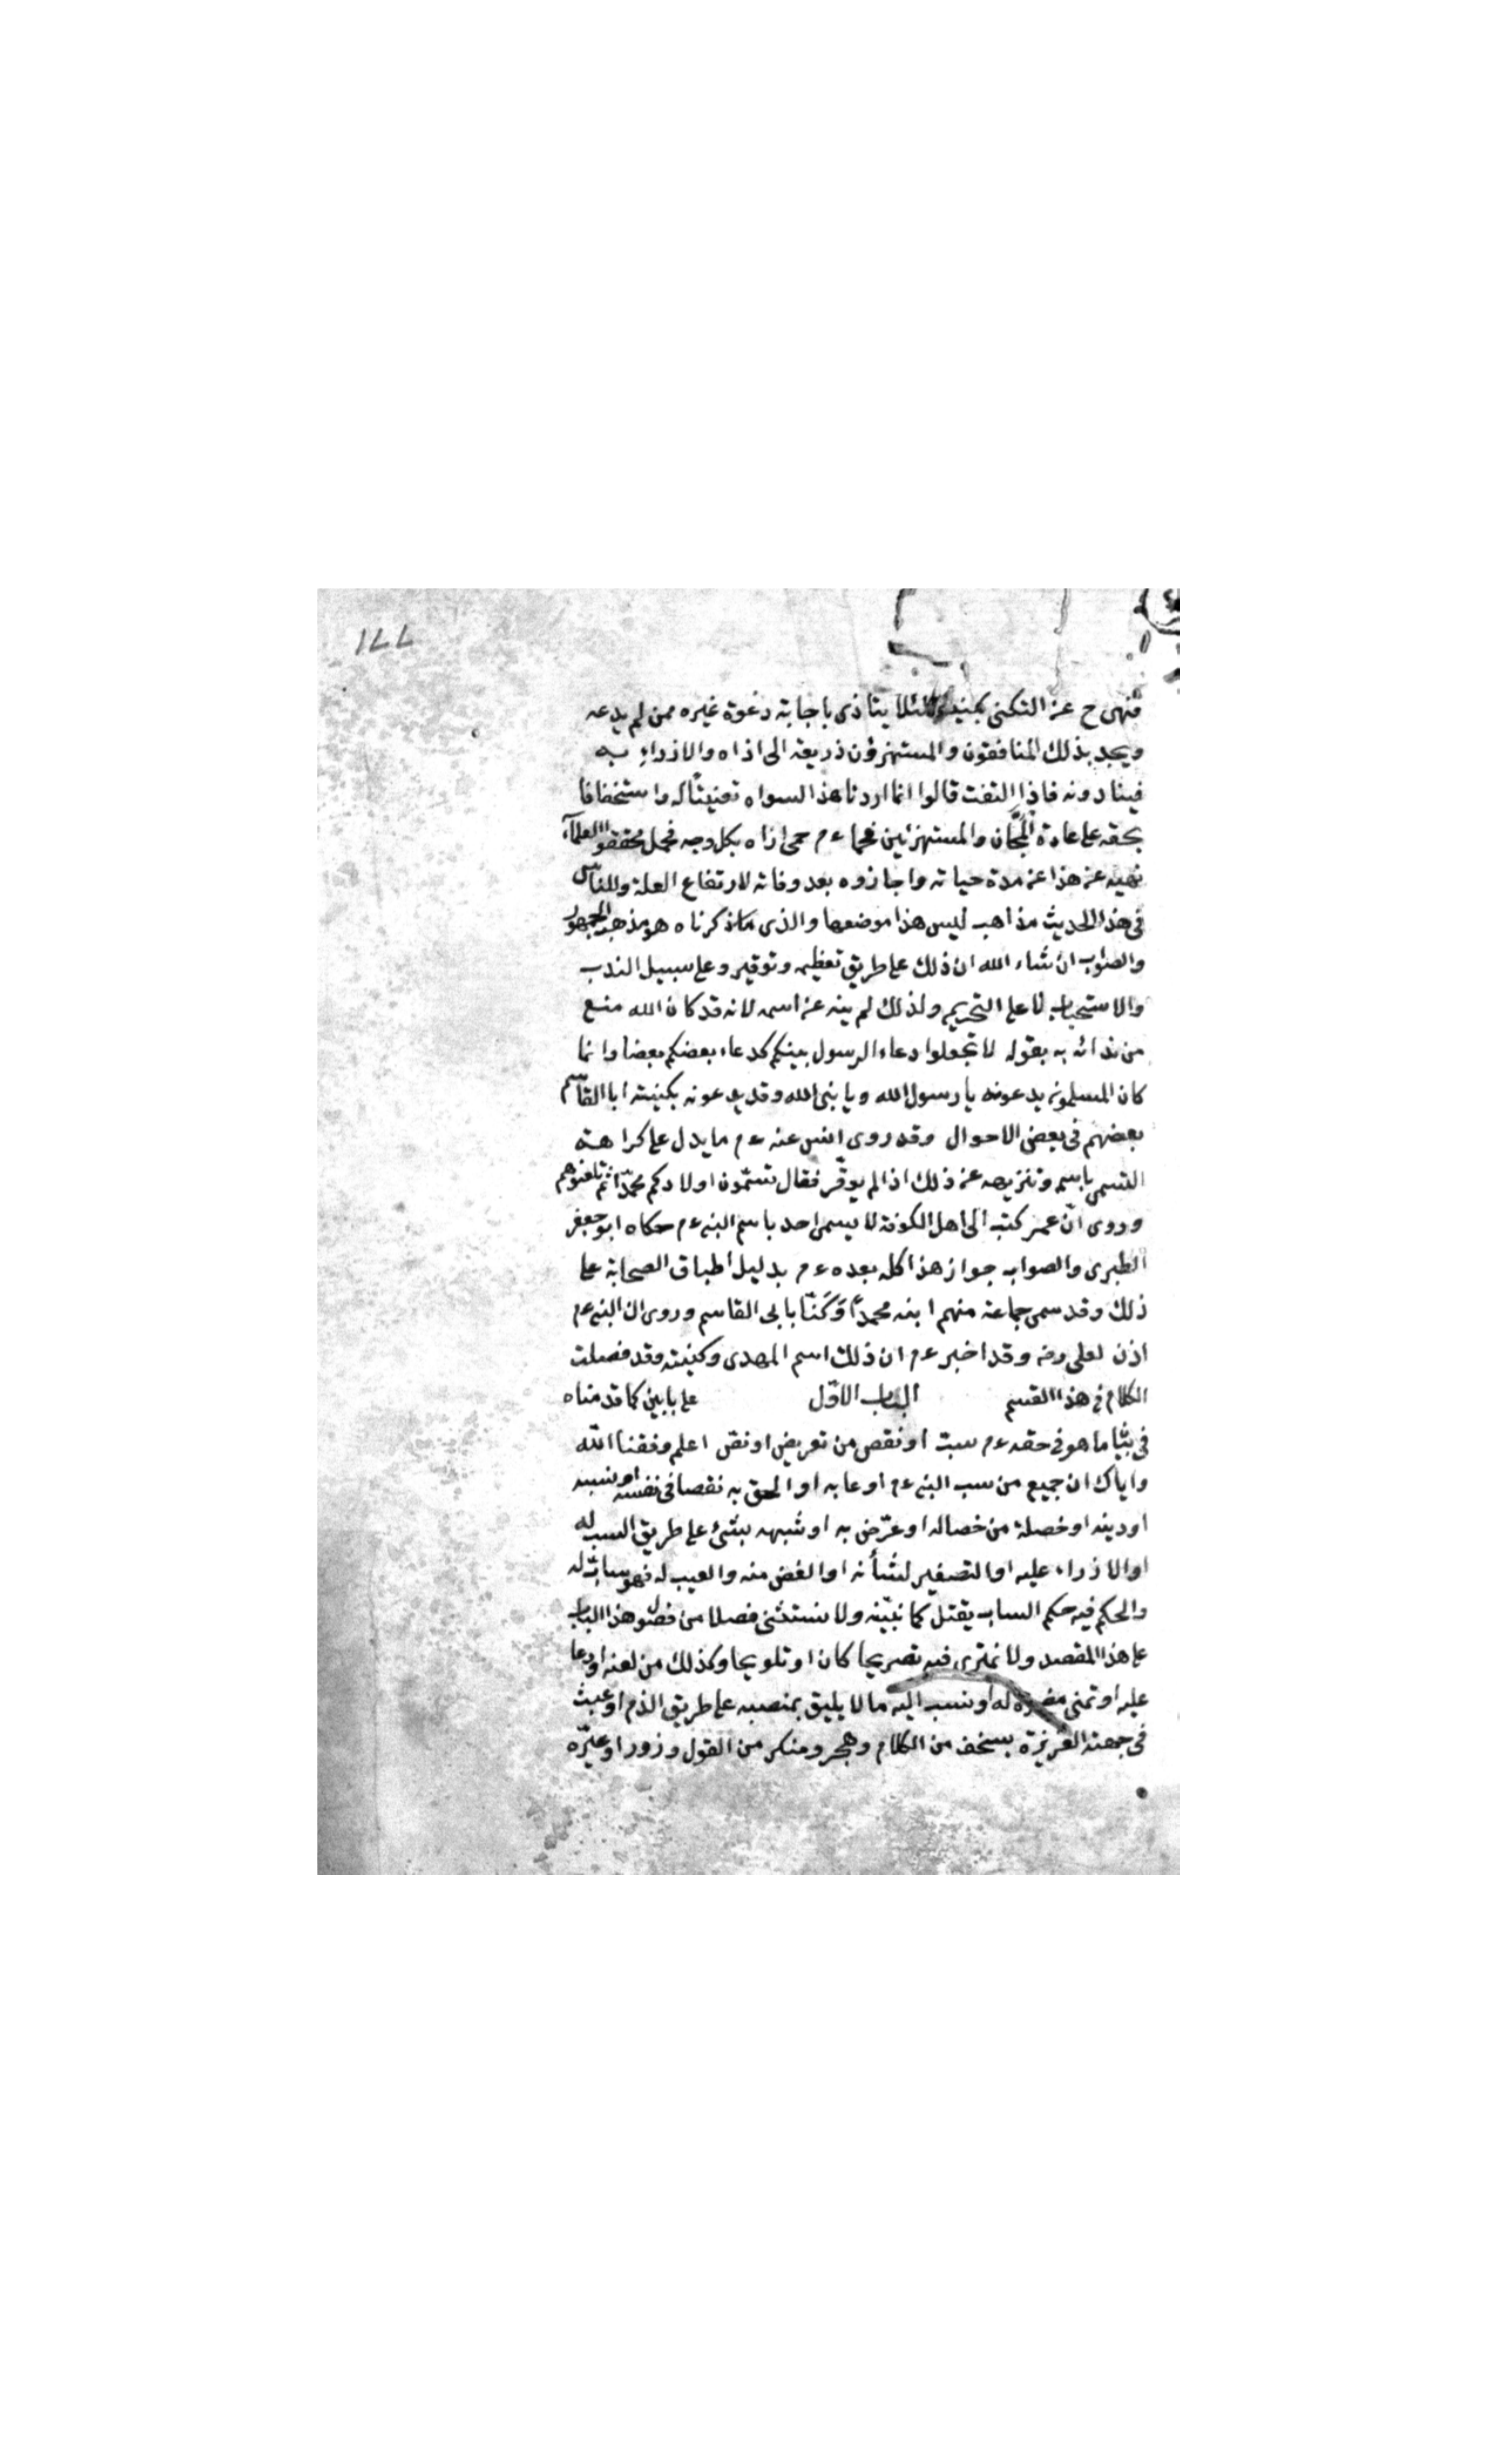 ١٧٧
فنهى ح عن التكنى بكنيته لئلا يتاذى باجابة دعوة غيره ممن لم يدعه
ويجد بذلك المنافقون والمستهزؤن ذريعة الى اذاه والازراء به
فينادونه فاذا التفت قالوا انما اردنا هذا السواه تعنيتًا له واستخفافا
بحقه على عادة المُجَّان والمستهزئين فحما ءم حمى اذاه بكل وجه فحمل محققوا العلمآء
نهيه عن هذا عن مدة حياته واجازوه بعد وفاته لارتفاع العلة وللناس
فى هذا الحديث مذاهب ليس هذا موضعها والذى ذكرناه هو مذهب الجمهور
والصواب ان شاء الله ان ذلك على طريق تعظيمه وتوقيره وعلى سبيل الندب
والاستحباب لا على التحريم ولذلك لم ينه عن اسمه لانه قد كان الله منع
من ندائه به بقوله لا تجعلوا دعاء الرسول بينكم كدعاء بعضكم بعضا وانما
كان المسلمون يدعونه يا رسول الله ويا نبى الله وقد يدعونه بكنيته ابا القاسم
بعضهم فى بعض الاحوال وقد روى انس عنه ءم ما يدل على كراهة
التسمى باسمه وتنزيهه عن ذلك اذا لم يوقّر فقال تسمّون اولادكم محمدًا ثم تلعنوهم
وروى انّ عمر كتب الى اهل الكوفة لا يسمى احد باسم النبى ءم حكاه ابو جعفر
الطبرى والصواب جواز هذا كله بعده ءم بدليل اطباق الصحابة على
ذلك وقد سمى جماعة منهم ابنه محمدًا وَكَنّا بابى القاسم وروى ان النبى ءم
اذن لعلى رضه وقد اخبر ءم ان ذلك اسم المهدى وكنيته وقد فصلت
الكلام فى هذا القسم الباب الاوّل على بابين كما قدمناه
فى بيا ما هو فى حقه ءم سبت او نقص من تعريض او نقص اعلم وفقنا الله
واياك ان جميع من سب النبى ءم او عابه او الحق به نقصا فى نفسه او نسبه
او دينه او خصلة من خصاله او عرّض به او شبهه بشئ على طريق السب له
او الازراء عليه او التصغير لشأنه او الغض منه والعيب له فهو سابّ له
والحكم فيه حكم الساب يقتل كما نبيّنه ولا نستثنى فصلا من فصول هذا الباب
على هذا المقصد ولا نمترى فيه تصريحا كان او تلويحا وكذلك من لعنه او دعا
عليه او تمنى مضرة له او نسب اليه ما لا يليق بمنصبه على طريق الذم او عبث
فى جهته العزيزة بسخف من الكلام وهجر ومنكر من القول وزور او عيّره